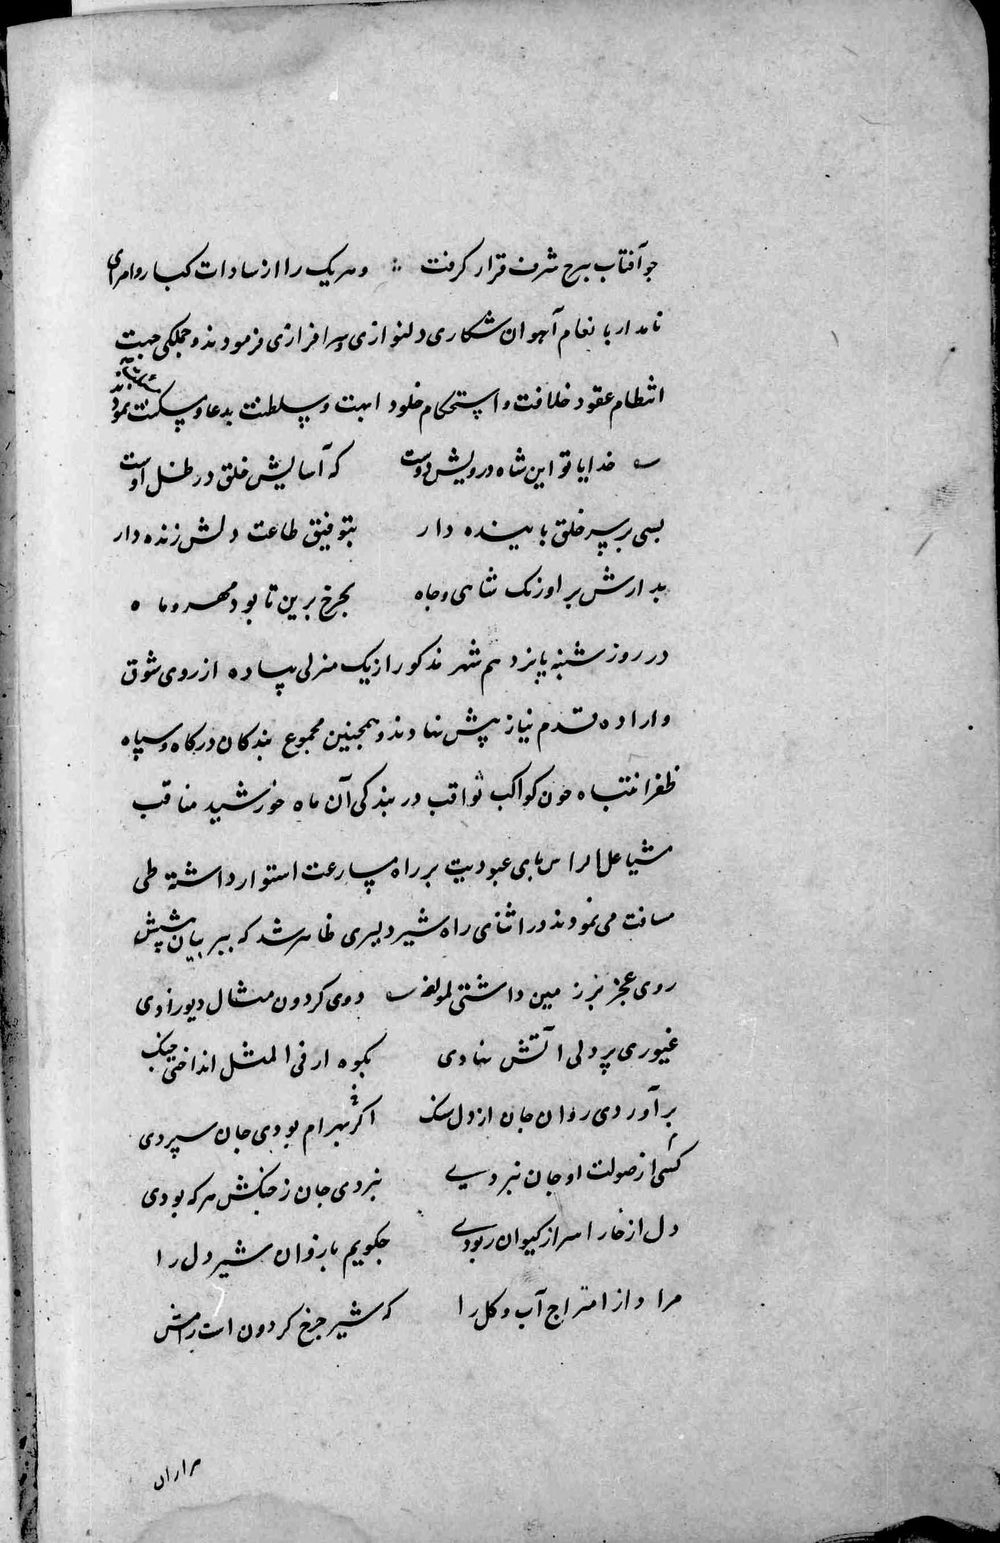 جو آفتاب ببرج شرف قرار کرفت ؞ و هریک را از سادات کبار و امرای
نامدار بانعام آهوان شکاری دلنوازی و سرافرازی فرمودند و جملکی جهت
انتظام عقود خلافت و استحکام خلود ابهت و سلطنت بدعا و مسکنت نمود
خدایا تو این شاه درویش دوست که آسایش خلق در ظل اوست
بسی بر سر خلق پاینده دار بتوفیق طاعت دلش زنده دار
بدارش بر اورنک شاهی و جاه بجرخ برین تا بود مهر و ماه
در روز شنبه پانزدهم شهر مذکور از یک منزلی پیاده از روی شوق
و اراده قدم نیاز پیش نهادند و همجنین مجموع بندکان درکاه و سپاه
ظفر انتباه جون کواکب ثواقب در بندکی آن ماه خورشید مناقب
مشیا علی الراس پای عبودیت بر راه مسارعت استوار داشته طی
مسافت می نمودند در اثنای راه شیر دلیری ظاهر شد که ببر بیان پیشش
روی عجز بر زمین داشتی لمولفه دوی کردون مثال دیوزادی
غیوری پر دلی آتش نهادی بکوه ار فی المثل انداختی جنک
برآوردی روان جان از دل سنک اکر بهرام بودی جان سپردی
کسی از صولت او جان نبردی نبردی جان ز جنکش هر که بودی
دل از خارا سر از کیوان ربودی جکویم بازوان شیر دل را
مراد از امتزاج آب و کل را که شیر جرخ کردون است رامش
هزاران